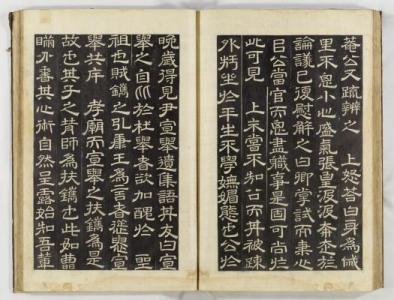 菴公又疏辨之 上怒答曰身為
里不思小心盛氣張皇波汲於
論議已復慰解之曰卿掌試而秉心
臣公當官而思盡職事是固可尚於
此可見 上未嘗不知公而其被疎
外坐於平生不學嫵媚態也公於
晩歲得見尹宣擧遺集語其友曰宣
擧之自比於杜擧者欲加醜於 聖
祖也賊鑴之引康王為言者從宣
擧共斥 孝廟而宣擧之扶鑴為是
故也其子之背師為扶鑴也此如曹
瞞分香其心術自然呈露始知吾輩